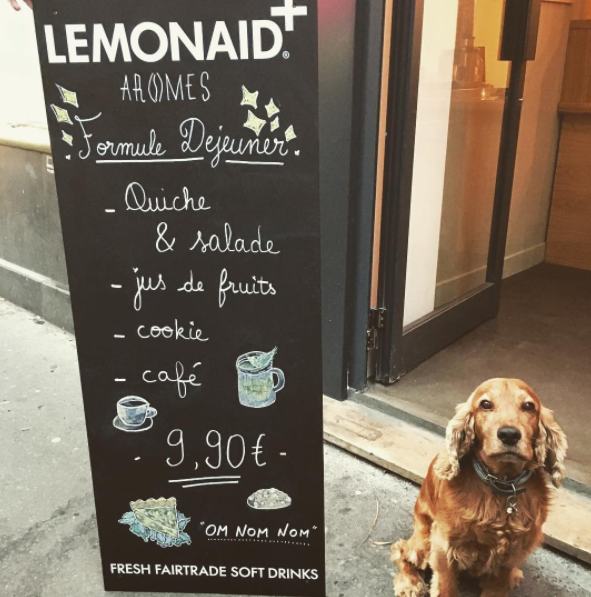 LEMONAID+®
AROMES
Formule Dejeuner.
- Quiche
& salade
- jus de fruits
- cookie
- café
- 9,90€ -
"OM NOM NOM"
FRESH FAIRTRADE SOFT DRINKS